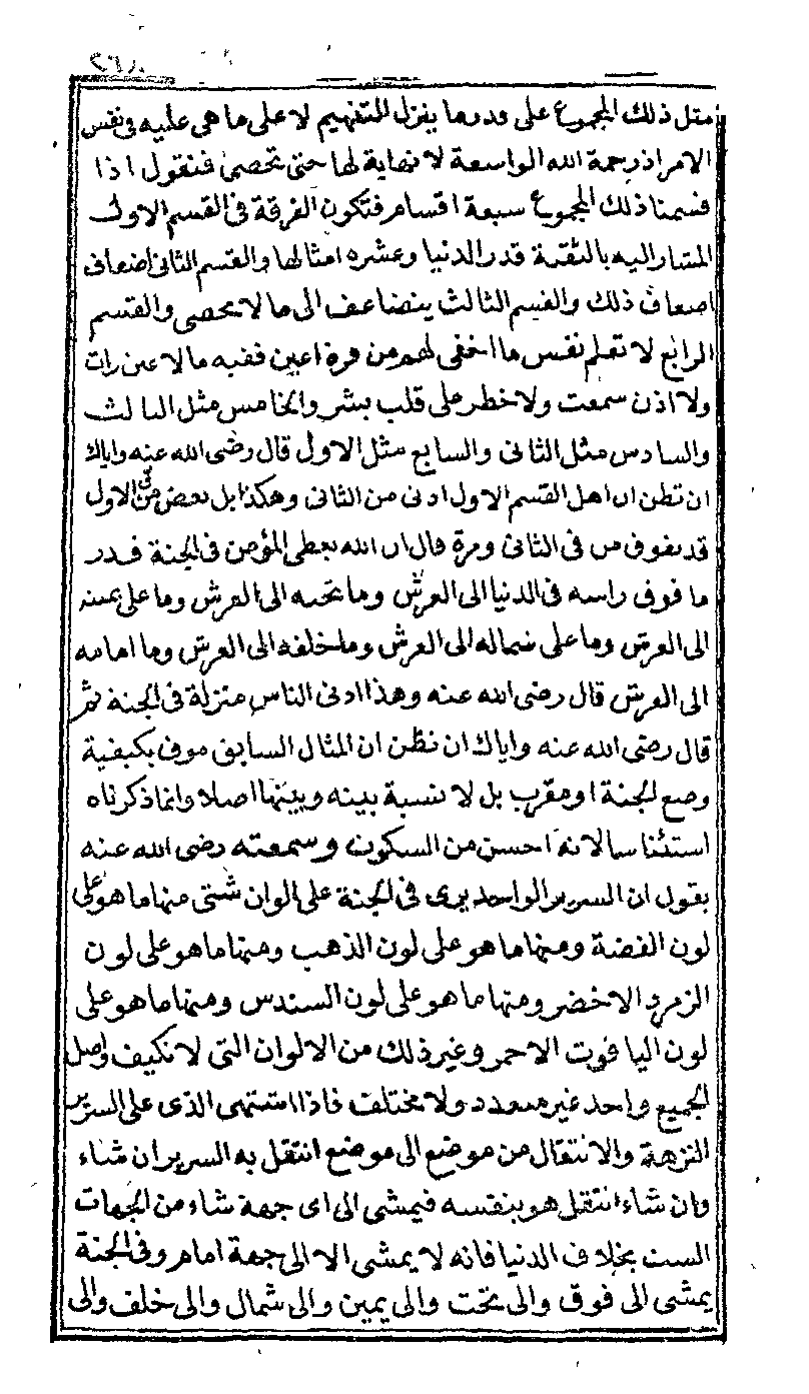 ٢٦٨
مثل ذلك المجموع على قدر ما ينزل للتفهيم لا على ما هى عليه فى نفس
الامر اذ رحمة الله الواسعة لا نهاية لها حتى تحصى فنقول اذا
قسمنا ذلك المجموع سبعة اقسام فتكون الفرقة فى القسم الاول
المشار اليه بالثقبة قدر الدنيا وعشره امثالها والقسم الثانى اضعاف
اضعاف ذلك والقسم الثالث يتضاعف الى ما لا يحصى والقسم
الرابع لا تعلم نفس ما اخفى لهم من قرة اعين ففيه ما لا عين رات
ولا اذن سمعت ولا خطر على قلب بشر والخامس مثل الثالث
والسادس مثل الثانى والسابع مثل الاول قال رضى الله عنه واياك
ان تظن ان اهل القسم الاول ادنى من الثانى وهكذا بل بعض من فى الاول
قد يفوق من فى الثانى ومرة قال ان الله يعطى المؤمن فى الجنة قدر
ما فوق راسه فى الدنيا الى العرش وما تحته الى العرش وما على يمينه
الى العرش وما على شماله الى العرش وما خلفه الى العرش وما امامه
الى العرش قال رضى الله عنه وهذا ادنى الناس منزلة فى الجنة ثم
قال رضى الله عنه واياك ان تظن ان المثال السابق موف بكيفية
وضع الجنة او مقرب بل لا نسبة بينه وبينها اصلا وانما ذكرناه
استئناسا لانه احسن من السكوت وسمعته رضى الله عنه
يقول ان السرير الواحد يرى فى الجنة على الوان شتى منها ما هو على
لون الفضة ومنها ما هو على لون الذهب ومنها ما هو على لون
الزمرد الاخضر ومنها ما هو على لون السندس ومنها ما هو على
لون الياقوت الاحمر وغير ذلك من الالوان التى لا تكيف واصل
الجميع واحد غير متعدد ولا مختلف فاذا اشتهى الذى على السرير
النزهة والانتقال من موضع الى موضع انتقل به السرير ان شاء
وان شاء انتقل هو بنفسه فيمشى الى اى جهة شاء من الجهات
الست بخلاف الدنيا فانه لا يمشى الا الى جهة امام وفى الجنة
يمشى الى فوق والى تحت والى يمين والى شمال والى خلف والى